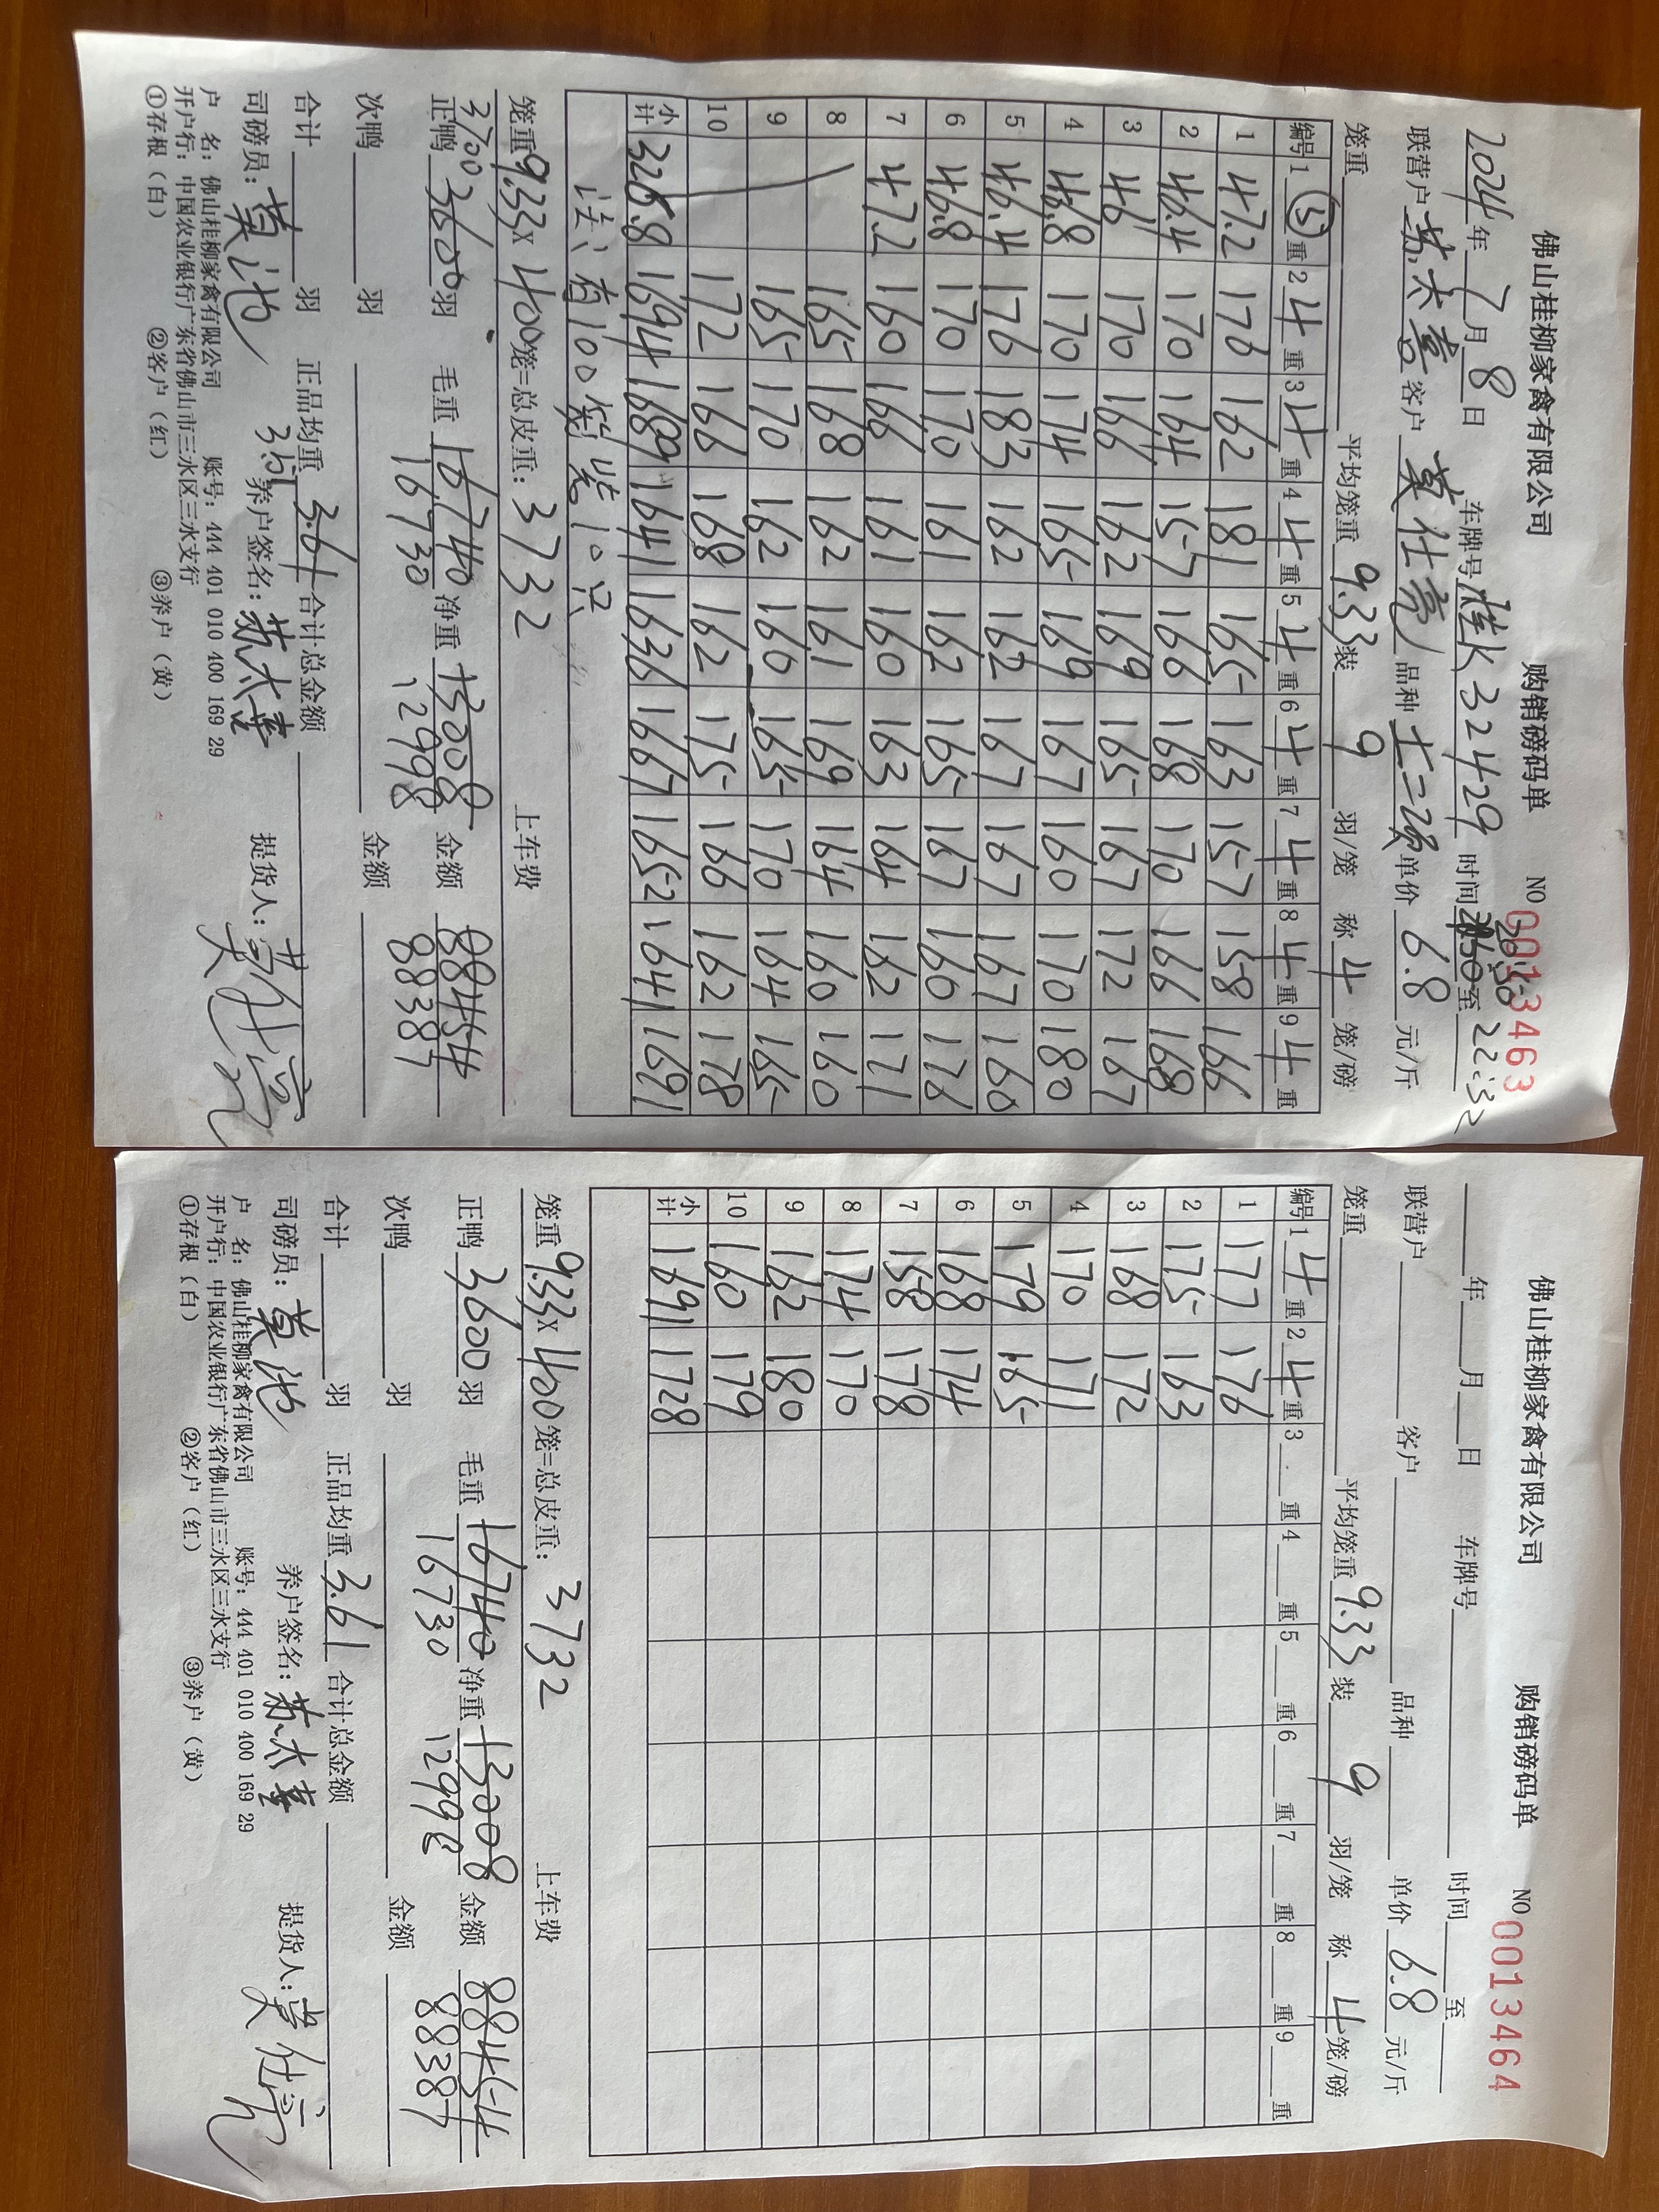 佛山桂柳家禽有限公司 购销磅码单 NO 0013463
2024年7月8日 车牌号桂K32429 时间20:50至22:32
联营户苏太喜 客户莫仕亮 品种 单价6.8元/斤
笼重 平均笼重9.33装9羽/笼 称4笼/磅
编号 1⑤重 2 4重 3 4重 4 4重 5 4重 6 4重 7 4重 8 4重 9 4重
1 47.2 176 162 181 165 163 157 158 166
2 46.4 170 164 157 166 168 170 166 168
3 46 170 166 162 169 165 167 172 167
4 46.8 170 174 165 169 167 160 170 180
5 46.4 176 183 162 162 167 167 167 160
6 46.8 170 170 161 162 165 167 160 176
7 47.2 160 166 161 160 163 164 162 171
8 165 168 162 161 169 164 160 160
9 165 170 162 160 165 170 164 165
10 172 166 168 162 175 166 162 178
小计 326.8 1694 1689 1641 1636 1667 1652 1641 1691
注:有100笼装10只
笼重9.33×400笼=总皮重:3732 上车费
3700
正鸭3600羽 毛重16740净重13008金额88454
16730 12998 88387
次鸭 羽 金额
合计 羽 正品均重3.61合计总金额
3.51
司磅员:莫池 养户签名:苏太喜 提货人:莫仕亮
户 名:佛山桂柳家禽有限公司 账号:444 401 010 400 169 29
开户行:中国农业银行广东省佛山市三水区三水支行
①存根(白) ②客户(红) ③养户(黄)
佛山桂柳家禽有限公司 购销磅码单 NO 0013464
年 月 日 车牌号 时间 至
联营户 客户 品种 单价6.8元/斤
笼重 平均笼重9.33装9羽/笼 称4笼/磅
编号 1 4重 2 4重 3 重 4 重 5 重 6 重 7 重 8 重 9 重
1 177 176
2 175 163
3 168 172
4 170 171
5 179 165
6 168 174
7 158 178
8 174 170
9 162 180
10 160 179
小计 1691 1728
笼重9.33×400笼=总皮重:3732 上车费
正鸭3600羽 毛重16740净重13008金额88454
16730 12998 88387
次鸭 羽 金额
合计 羽 正品均重3.61合计总金额
司磅员:莫池 养户签名:苏太喜 提货人:莫仕亮
户 名:佛山桂柳家禽有限公司 账号:444 401 010 400 169 29
开户行:中国农业银行广东省佛山市三水区三水支行
①存根(白) ②客户(红) ③养户(黄)